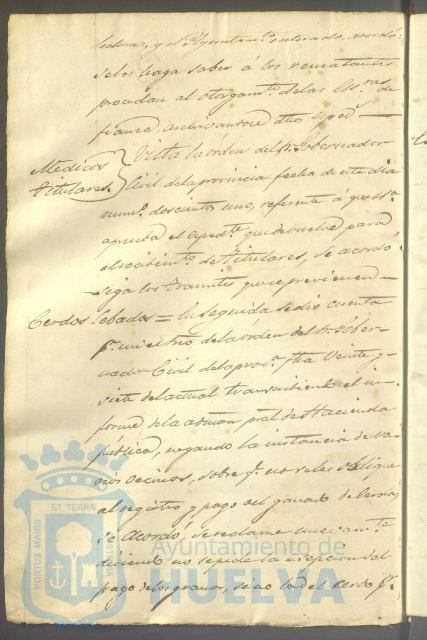 lecturas, y el Ayuntam.to enterado, acordó:
se les haga saber á los rematantes
procedan al otorgam.to de las Es.ras de
fianza, archivandose dhos esped.
Medicos
titulares.
Vista la órden del Sr. Gobernador
Civil de la provincia fecha de este dia
num.o doscientos uno, referente á que se
aprueba el esped.te que devuelve para
el recibim.to de titulares, se acordó
siga los tramites que se previenen
Cerdos cebados = En seguida se dio cuenta
p.r mi el Srio de la órden del Sr. Gober-
nador Civil de la prov.a fha Veinte y
siete del actual transcribiendo el in-
forme de la admon pral de Hacienda
pública, negando la instancia de va-
rios vecinos, sobre q.e no se les obligue
al registro y pago del ganado de Cerda,
Se Acordó, se reclame nuevam.te
diciendo no se pide la esepcion del
pago de los granos, si no la del cerdo q.e
PORTUS MARIS
ET TERRÆ
CUSTODIA
Ayuntamiento de
HUELVA